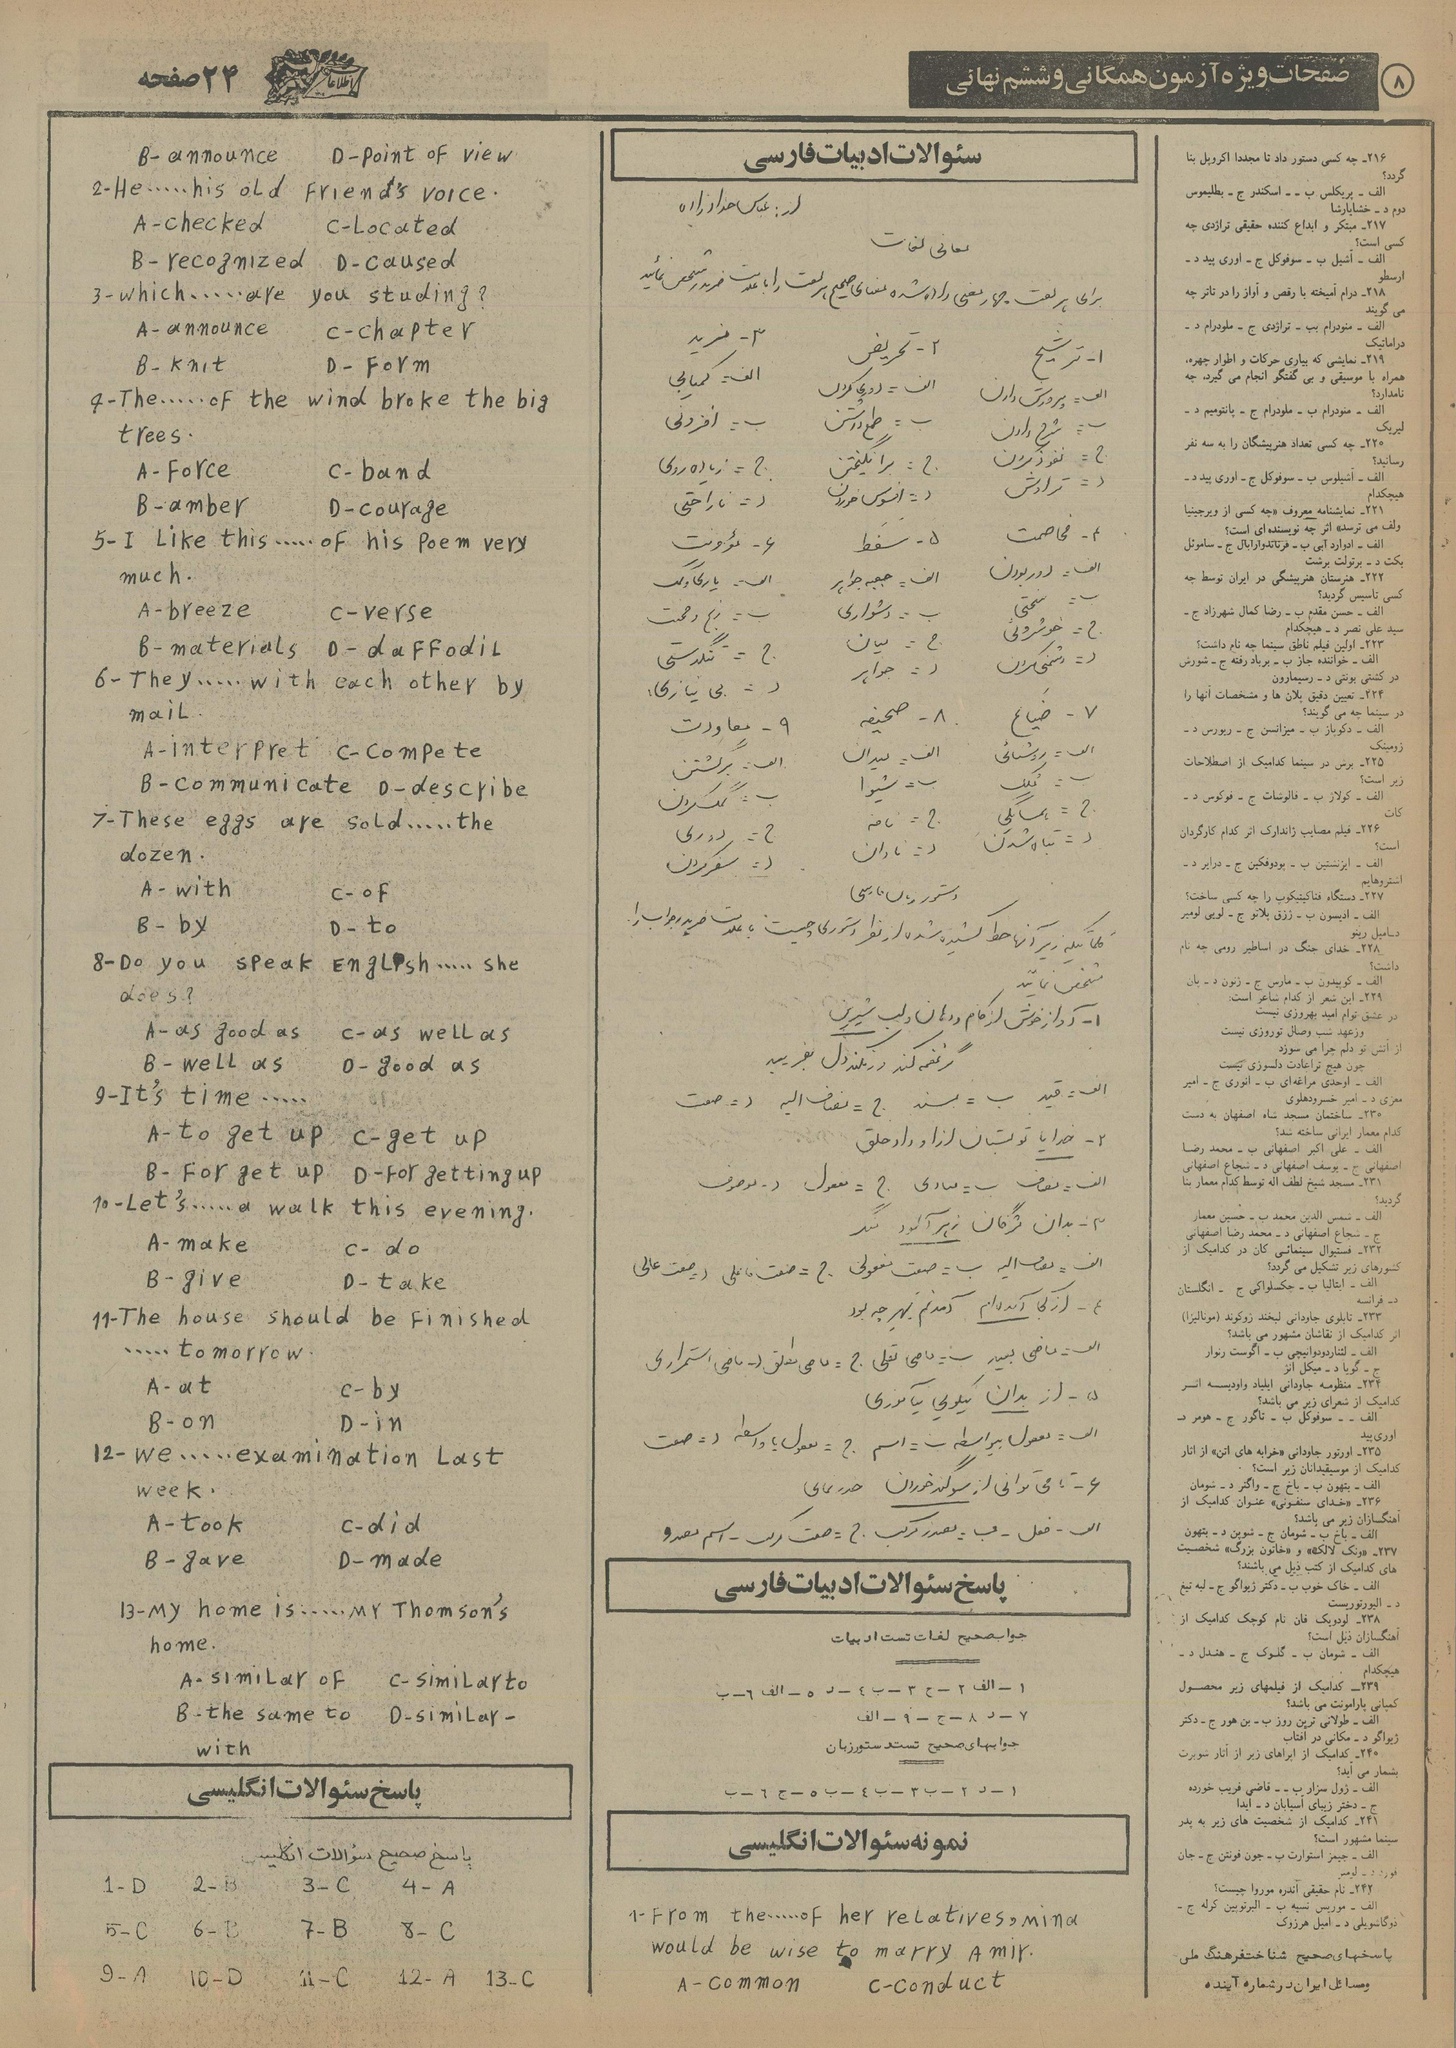 ۸
صفحات ویژه آزمون همگانی و ششم نهائی
اطلاعات
۲۴ صفحه
۲۱۶ـ چه کسی دستور داد تا مجددا اکروپل بنا
گردد؟
الف ـ پریکلس ب ـ ـ اسکندر ج ـ بطلیموس
دوم د ـ خشایارشا
۲۱۷ـ مبتکر و ابداع کننده حقیقی تراژدی چه
کسی است؟
الف ـ آشیل ب ـ سوفوکل ج ـ اوری پید د ـ
ارسطو
۲۱۸ـ درام آمیخته با رقص و آواز را در تاتر چه
می گویند
الف ـ منودرام بب ـ تراژدی ج ـ ملودرام د ـ
دراماتیک
۲۱۹ـ نمایشی که بیاری حرکات و اطوار چهره،
همراه با موسیقی و بی گفتگو انجام می گیرد، چه
نامدارد؟
الف ـ منودرام ب ـ ملودرام ج ـ پانتومیم د ـ
لیریک
۲۲۰ـ چه کسی تعداد هنرپیشگان را به سه نفر
رسانید؟
الف ـ آشیلوس ب ـ سوفوکل ج ـ اوری پید د ـ
هیچکدام
۲۲۱ـ نمایشنامه معروف «چه کسی از ویرجینیا
ولف می ترسد» اثر چه نویسنده ای است؟
الف ـ ادوارد آبی ب ـ فرناندوآرابال ج ـ ساموئل
بکت د ـ برتولت برشت
۲۲۲ـ هنرستان هنرپیشگی در ایران توسط چه
کسی تاسیس گردید؟
الف ـ حسن مقدم ب ـ رضا کمال شهرزاد ج ـ
سید علی نصر د ـ هیچکدام
۲۲۳ـ اولین فیلم ناطق سینما چه نام داشت؟
الف ـ خواننده جاز ب ـ برباد رفته ج ـ شورش
در کشتی بونتی د ـ رسیمارون
۲۲۴ـ تعیین دقیق پلان ها و مشخصات آنها را
در سینما چه می گویند؟
الف ـ دکوپاز ب ـ میزانسن ج ـ ریورس د ـ
زومینک
۲۲۵ـ برش در سینما کدامیک از اصطلاحات
زیر است؟
الف ـ کولاژ ب ـ فالوشات ج ـ فوکوس د ـ
کات
۲۲۶ـ فیلم مصایب ژاندارک اثر کدام کارگردان
است؟
الف ـ ایزنشتین ب ـ پودوفکین ج ـ درایر د ـ
اشتروهایم
۲۲۷ـ دستگاه فناکیتیکوب را چه کسی ساخت؟
الف ـ ادیسون ب ـ ژزق پلاتو ج ـ لویی لومیر
د ـ امیل رینو
۲۲۸ـ خدای جنگ در اساطیر رومی چه نام
داشت؟
الف ـ کوپیدون ب ـ مارس ج ـ ژنون د ـ پان
۲۲۹ـ این شعر از کدام شاعر است:
در عشق توام امید بهروزی نیست
وزعهد شب وصال توروزی نیست
از آتش تو دلم چرا می سوزد
چون هیچ تراعادت دلسوزی نیست
الف ـ اوحدی مراغه‌ای ب ـ انوری ج ـ امیر
معزی د ـ امیر خسرودهلوی
۲۳۰ـ ساختمان مسجد شاه اصفهان به دست
کدام معمار ایرانی ساخته شد؟
الف ـ علی اکبر اصفهانی ب ـ محمد رضا
اصفهانی ج ـ یوسف اصفهانی د ـ شجاع اصفهانی
۲۳۱ـ مسجد شیخ لطف اله توسط کدام معمار بنا
گردید؟
الف ـ شمس الدین محمد ب ـ حسین معمار
ج ـ شجاع اصفهانی د ـ محمد رضا اصفهانی
۲۳۲ـ فستیوال سینمائی کان در کدامیک از
کشورهای زیر تشکیل می گردد؟
الف ـ ایتالیا ب ـ چکسلواکی ج ـ انگلستان
د ـ فرانسه
۲۳۳ـ تابلوی جاودانی لبخند ژوکوند (مونالیزا)
اثر کدامیک از نقاشان مشهور می باشد؟
الف ـ لئناردودواینچی ب ـ اگوست رنوار
ج ـ گویا د ـ میکل آنژ
۲۳۴ـ منظومه جاودانی ایلیاد واودیسه اثر
کدامیک از شعرای زیر می باشد؟
الف ـ ـ سوفوکل ب ـ تاگور ج ـ هومر د ـ
اوری‌پید
۲۳۵ـ اورتور جاودانی «خرابه های آتن» از آثار
کدامیک از موسیقیدانان زیر است؟
الف ـ بتهون ب ـ باخ ج ـ واگنر د ـ شومان
۲۳۶ـ «خدای سنفونی» عنوان کدامیک از
آهنگسازان زیر می باشد؟
الف ـ باخ ب ـ شومان ج ـ شوپن د ـ بتهون
۲۳۷ـ «ونک لالک» و «خاتون بزرگ» شخصیت
های کدامیک از کتب ذیل می باشند؟
الف ـ خاک خوب ب ـ دکتر ژیواگو ج ـ لبه تیغ
د ـ الیورتوریست
۲۳۸ـ لودویک فان نام کوچک کدامیک از
آهنگسازان ذیل است؟
الف ـ شومان ب ـ گلوک ج ـ هندل د ـ
هیچکدام
۲۳۹ـ کدامیک از فیلمهای زیر محصول
کمپانی پارامونت می باشد؟
الف ـ طولانی ترین روز ب ـ بن هور ج ـ دکتر
ژیواگو د ـ مکانی در آفتاب
۲۴۰ـ کدامیک از اپراهای زیر از آثار شوبرت
بشمار می آید؟
الف ـ ژول سزار ب ـ ـ قاضی فریب خورده
ج ـ دختر زیبای آسیابان د ـ آیدا
۲۴۱ـ کدامیک از شخصیت های زیر به پدر
سینما مشهور است؟
الف ـ جیمز استوارت ب ـ جون فونتن ج ـ جان
فورد د ـ لومیر
۲۴۲ـ نام حقیقی آندره موروا چیست؟
الف ـ موریس نسیه ب ـ البرتوبین کرله ج ـ
دوگاشویلی د ـ امیل هرزوک
پاسخهای صحیح شناخت فرهنگ ملی
ومسائل ایران در شماره آینده
سئوالات ادبیات فارسی
از: عباس خدادزاده
معانی لغات
برای هر لغت چهار معنی داده شده معنای صحیح هر لغت را با علامت ضربدر مشخص نمائید
۱- ترشیح ۲- تحریض ۳- مزید
الف= پرورش دادن الف= دوری کردن الف= کمیابی
ب= شرح دادن ب= طمع داشتن ب= افزونی
ج= نفوذ کردن ج= برانگیختن ج= زیاده روی
د= تراوش د= افسوس خوردن د= ناراحتی
۴- مخاصمت ۵- سفط ۶- مؤونت
الف= دور بودن الف= جعبه جواهر الف= یاری و کمک
ب= سختی ب= دشواری ب= رنج و محنت
ج= خوشروئی ج= میان ج= تنگدستی
د= دشمنی کردن د= جواهر د= بی نیازی
۷- ضیاع ۸- صحیفه ۹- معاودت
الف= روشنائی الف= میدان الف= برگشتن
ب= کمک ب= شیوا ب= کمک کردن
ج= همسایگی ج= نامه ج= دوری
د= تباه شدن د= نادان د= سفر کردن
دستور زبان فارسی
کلماتیکه زیر آنها خط کشیده شده از نظر دستوری چیست با علامت ضربدر جواب را
مشخص نمائید
۱- آواز خوش از کام و دهان و لب شیرین
گر نغمه کند ور نکند دل بفریبد
الف= قید ب= مسند ج= مضاف الیه د= صفت
۲- خدایا تو بستان از او داد خلق
الف= مضاف ب= منادی ج= مفعول د= موصوف
۳- بدان مژگان زهر آلود منگر
الف= مضاف الیه ب= صفت مفعولی ج= صفت فاعلی د= صفت عالی
۴- از کجا آمده‌ام آمدنم بهر چه بود
الف= ماضی بعید ب= ماضی نقلی ج= ماضی مطلق د= ماضی استمراری
۵- از بدان نیکویی نیاموزی
الف= مفعول بیواسطه ب= اسم ج= مفعول باواسطه د= صفت
۶- تا می توانی از سوگند خوردن حذر نمای
الف- فعل - ب= مصدر مرکب ج= صفت مرکب - اسم مصدر
پاسخ سئوالات ادبیات فارسی
جواب صحیح لغات تست ادبیات
۱ - الف ۲ - ج ۳ - ب ۴ - د ۵ - الف ۶ - ب
۷ - د ۸ - ج - ۹ - الف
جوابهای صحیح تست دستور زبان
۱ - د ۲ - ب ۳ - ب ۴ - ب ۵ - ج ۶ - ب
نمونه سئوالات انگلیسی
1-From the.....of her relatives, mina
would be wise to marry Amir.
A-common C-conduct
B-announce D-Point of view
2-He.....his old Friend's voice.
A-checked C-Located
B-recognized D-caused
3-which.....are you studing?
A-announce C-chapter
B-Knit D-Form
4-The.....of the wind broke the big
trees.
A-Force C-band
B-amber D-courage
5-I Like this.....of his Poem very
much.
A-breeze C-verse
B-materials D-daffodil
6-They.....with each other by
mail.
A-interpret C-compete
B-communicate D-describe
7-These eggs are sold.....the
dozen.
A-with C-of
B-by D-to
8-Do you speak English.....she
does?
A-as good as C-as well as
B-well as D-good as
9-It's time.....
A-to get up C-get up
B-For get up D-for getting up
10-Let's.....a walk this evening.
A-make C-do
B-give D-take
11-The house should be Finished
.....tomorrow.
A-at C-by
B-on D-in
12-we.....examination Last
week.
A-took C-did
B-gave D-made
13-My home is.....Mr Thomson's
home.
A-similar of C-similar to
B-the same to D-similar-
with
پاسخ سئوالات انگلیسی
پاسخ صحیح سؤالات انگلیسی
1-D 2-B 3-C 4-A
5-C 6-B 7-B 8-C
9-A 10-D 11-C 12-A 13-C